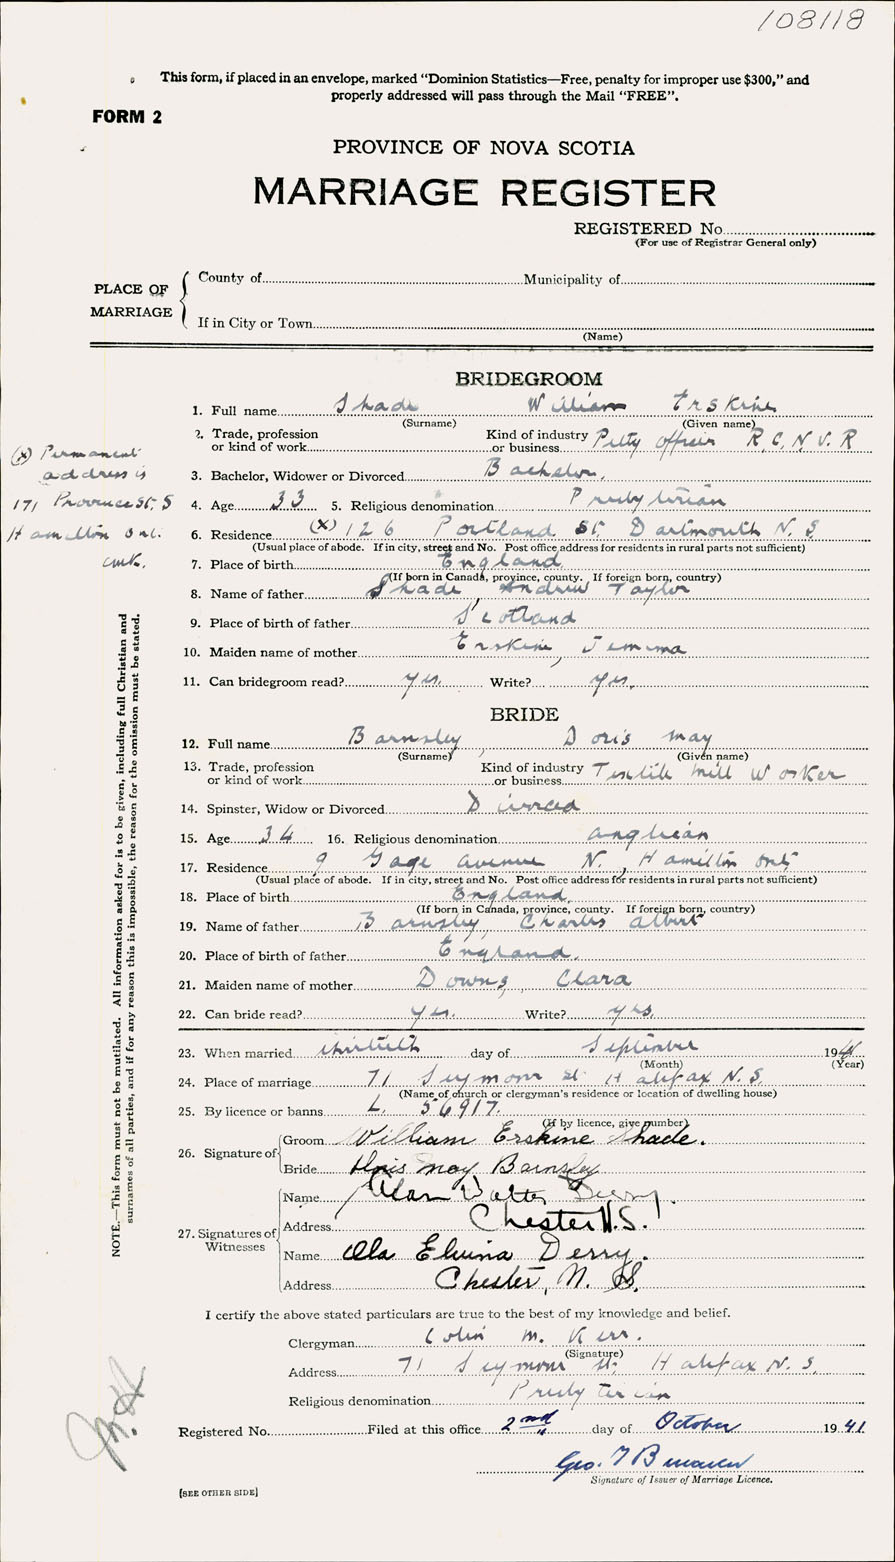 108118
This form, if placed in an envelope, marked "Dominion Statistics—Free, penalty for improper use $300," and
properly addressed will pass through the Mail "FREE".
FORM 2
PROVINCE OF NOVA SCOTIA
MARRIAGE REGISTER
REGISTERED No.
(For use of Registrar General only)
PLACE OF MARRIAGE
County of Municipality of
If in City or Town
(Name)
BRIDEGROOM
1. Full name Shade William Erskine
(Surname) (Given name)
2. Trade, profession or kind of work Kind of industry or business Petty officer R.C.N.V.R
3. Bachelor, Widower or Divorced Bachelor.
(x) Permanent
address is
171 Province St. S
Hamilton Ont.
4. Age 33 5. Religious denomination Presbyterian
6. Residence (x) 126 Portland St. Dartmouth N.S.
(Usual place of abode. If in city, street and No. Post office address for residents in rural parts not sufficient)
7. Place of birth England
(If born in Canada, province, county. If foreign born, country)
8. Name of father Shade, Andrew Taylor
9. Place of birth of father Scotland
10. Maiden name of mother Erskine, Jemima
11. Can bridegroom read? yes. Write? yes.
BRIDE
12. Full name Barnsley, Doris May
(Surname) (Given name)
13. Trade, profession or kind of work Kind of industry or business Textile Mill Worker
14. Spinster, Widow or Divorced Divorced
15. Age 34 16. Religious denomination Anglican
17. Residence 9 Gage Avenue N., Hamilton Ont.
(Usual place of abode. If in city, street and No. Post office address for residents in rural parts not sufficient)
18. Place of birth England.
(If born in Canada, province, county. If foreign born, country)
19. Name of father Barnsley, Charles Albert
20. Place of birth of father England.
21. Maiden name of mother Downs, Clara
22. Can bride read? yes. Write? yes.
23. When married thirtieth day of September 1941
(Month) (Year)
24. Place of marriage 71 Seymour St. Halifax N.S.
(Name of church or clergyman's residence or location of dwelling house)
25. By licence or banns L. 56917.
(If by licence, give number)
26. Signature of
Groom William Erskine Shade.
Bride Doris May Barnsley
27. Signatures of Witnesses
Name Alan Walter Derry.
Address Chester N.S.
Name Ola Elvina Derry.
Address Chester, N. S.
I certify the above stated particulars are true to the best of my knowledge and belief.
Clergyman Colin M. Kerr.
(Signature)
Address 71 Seymour St. Halifax N.S.
Religious denomination Presbyterian
Registered No. Filed at this office 2nd day of October 1941
Geo.
Signature of Issuer of Marriage Licence.
[SEE OTHER SIDE]
NOTE.—This form must not be mutilated. All information asked for is to be given, including full Christian and
surnames of all parties, and if for any reason this is impossible, the reason for the omission must be stated.